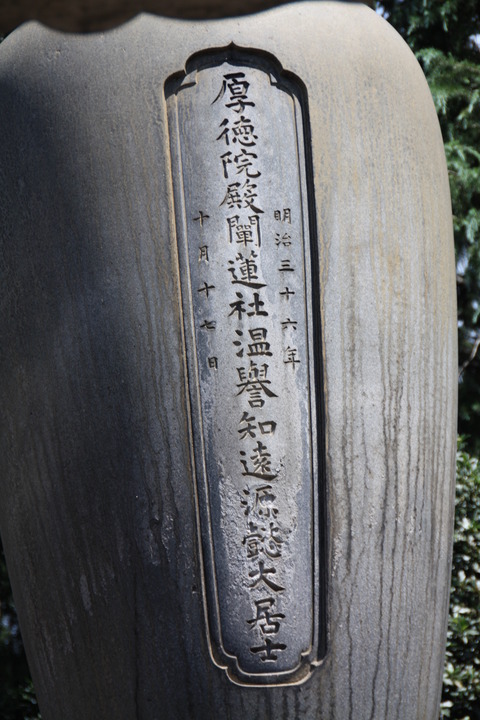 明治三十六年
厚德院殿闡蓮社温譽知遠源懿大居士
十月十七日